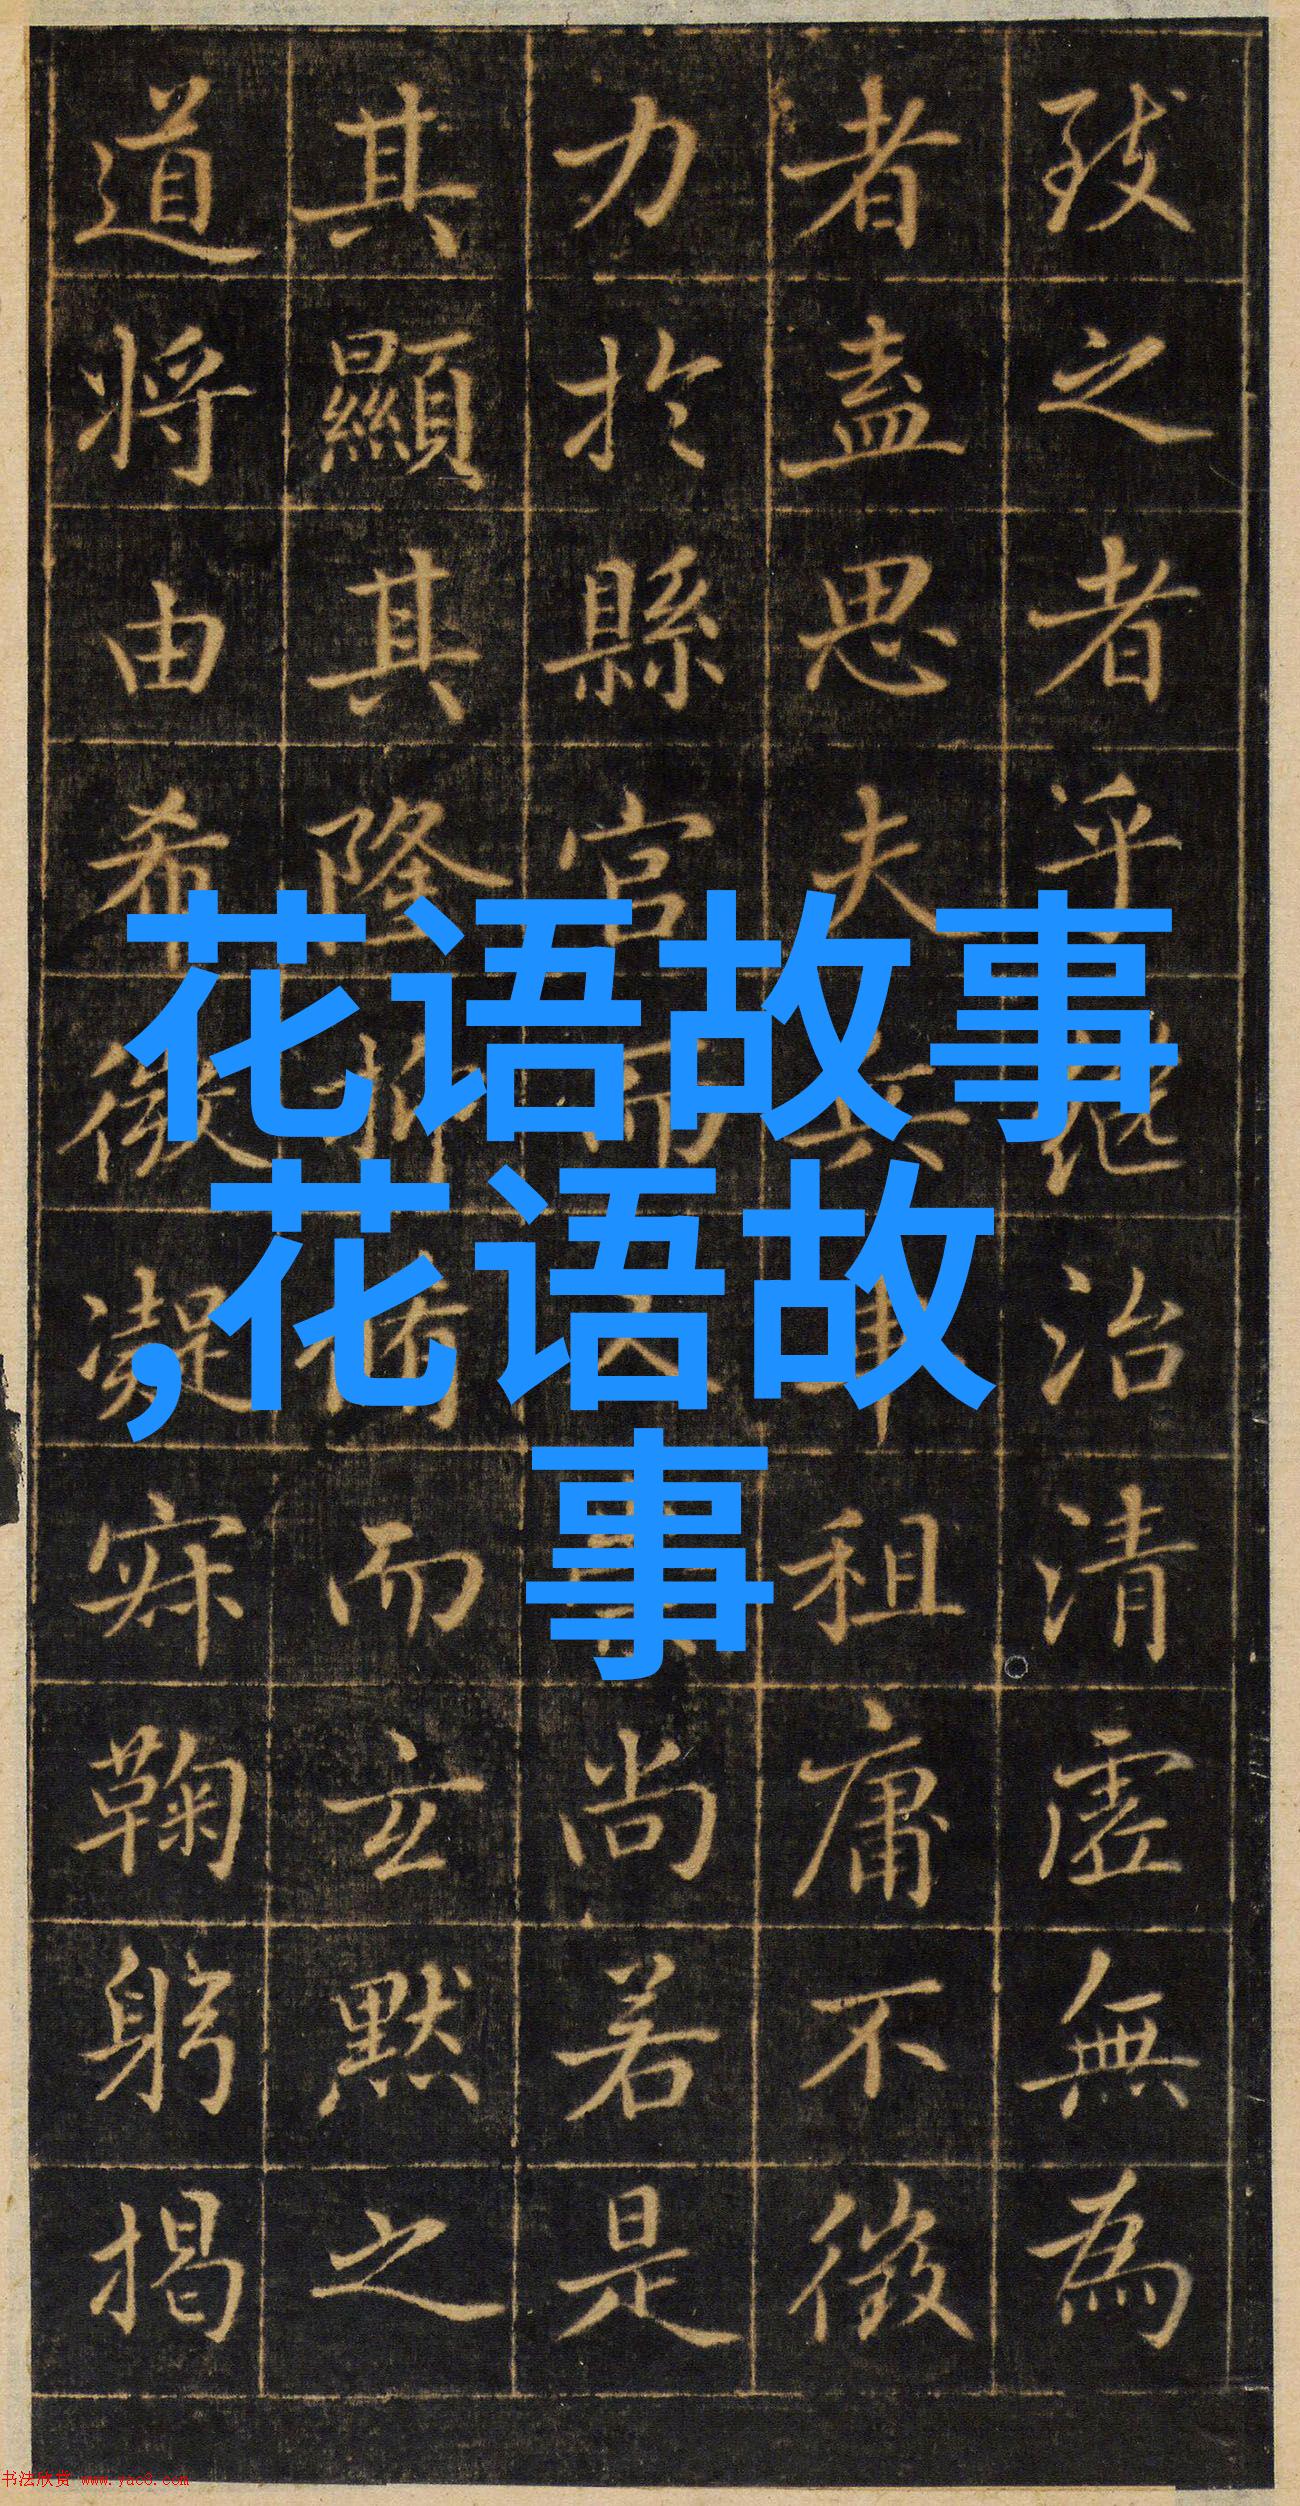 致之者乎治清虛無為
者盡思夫租庸不徵
力於縣官尚若是
其顯其隆而玄默之
道將由希微凝寂鞠躬揭
花语故事
,花语故
事
书法欣赏 www.yac8.com